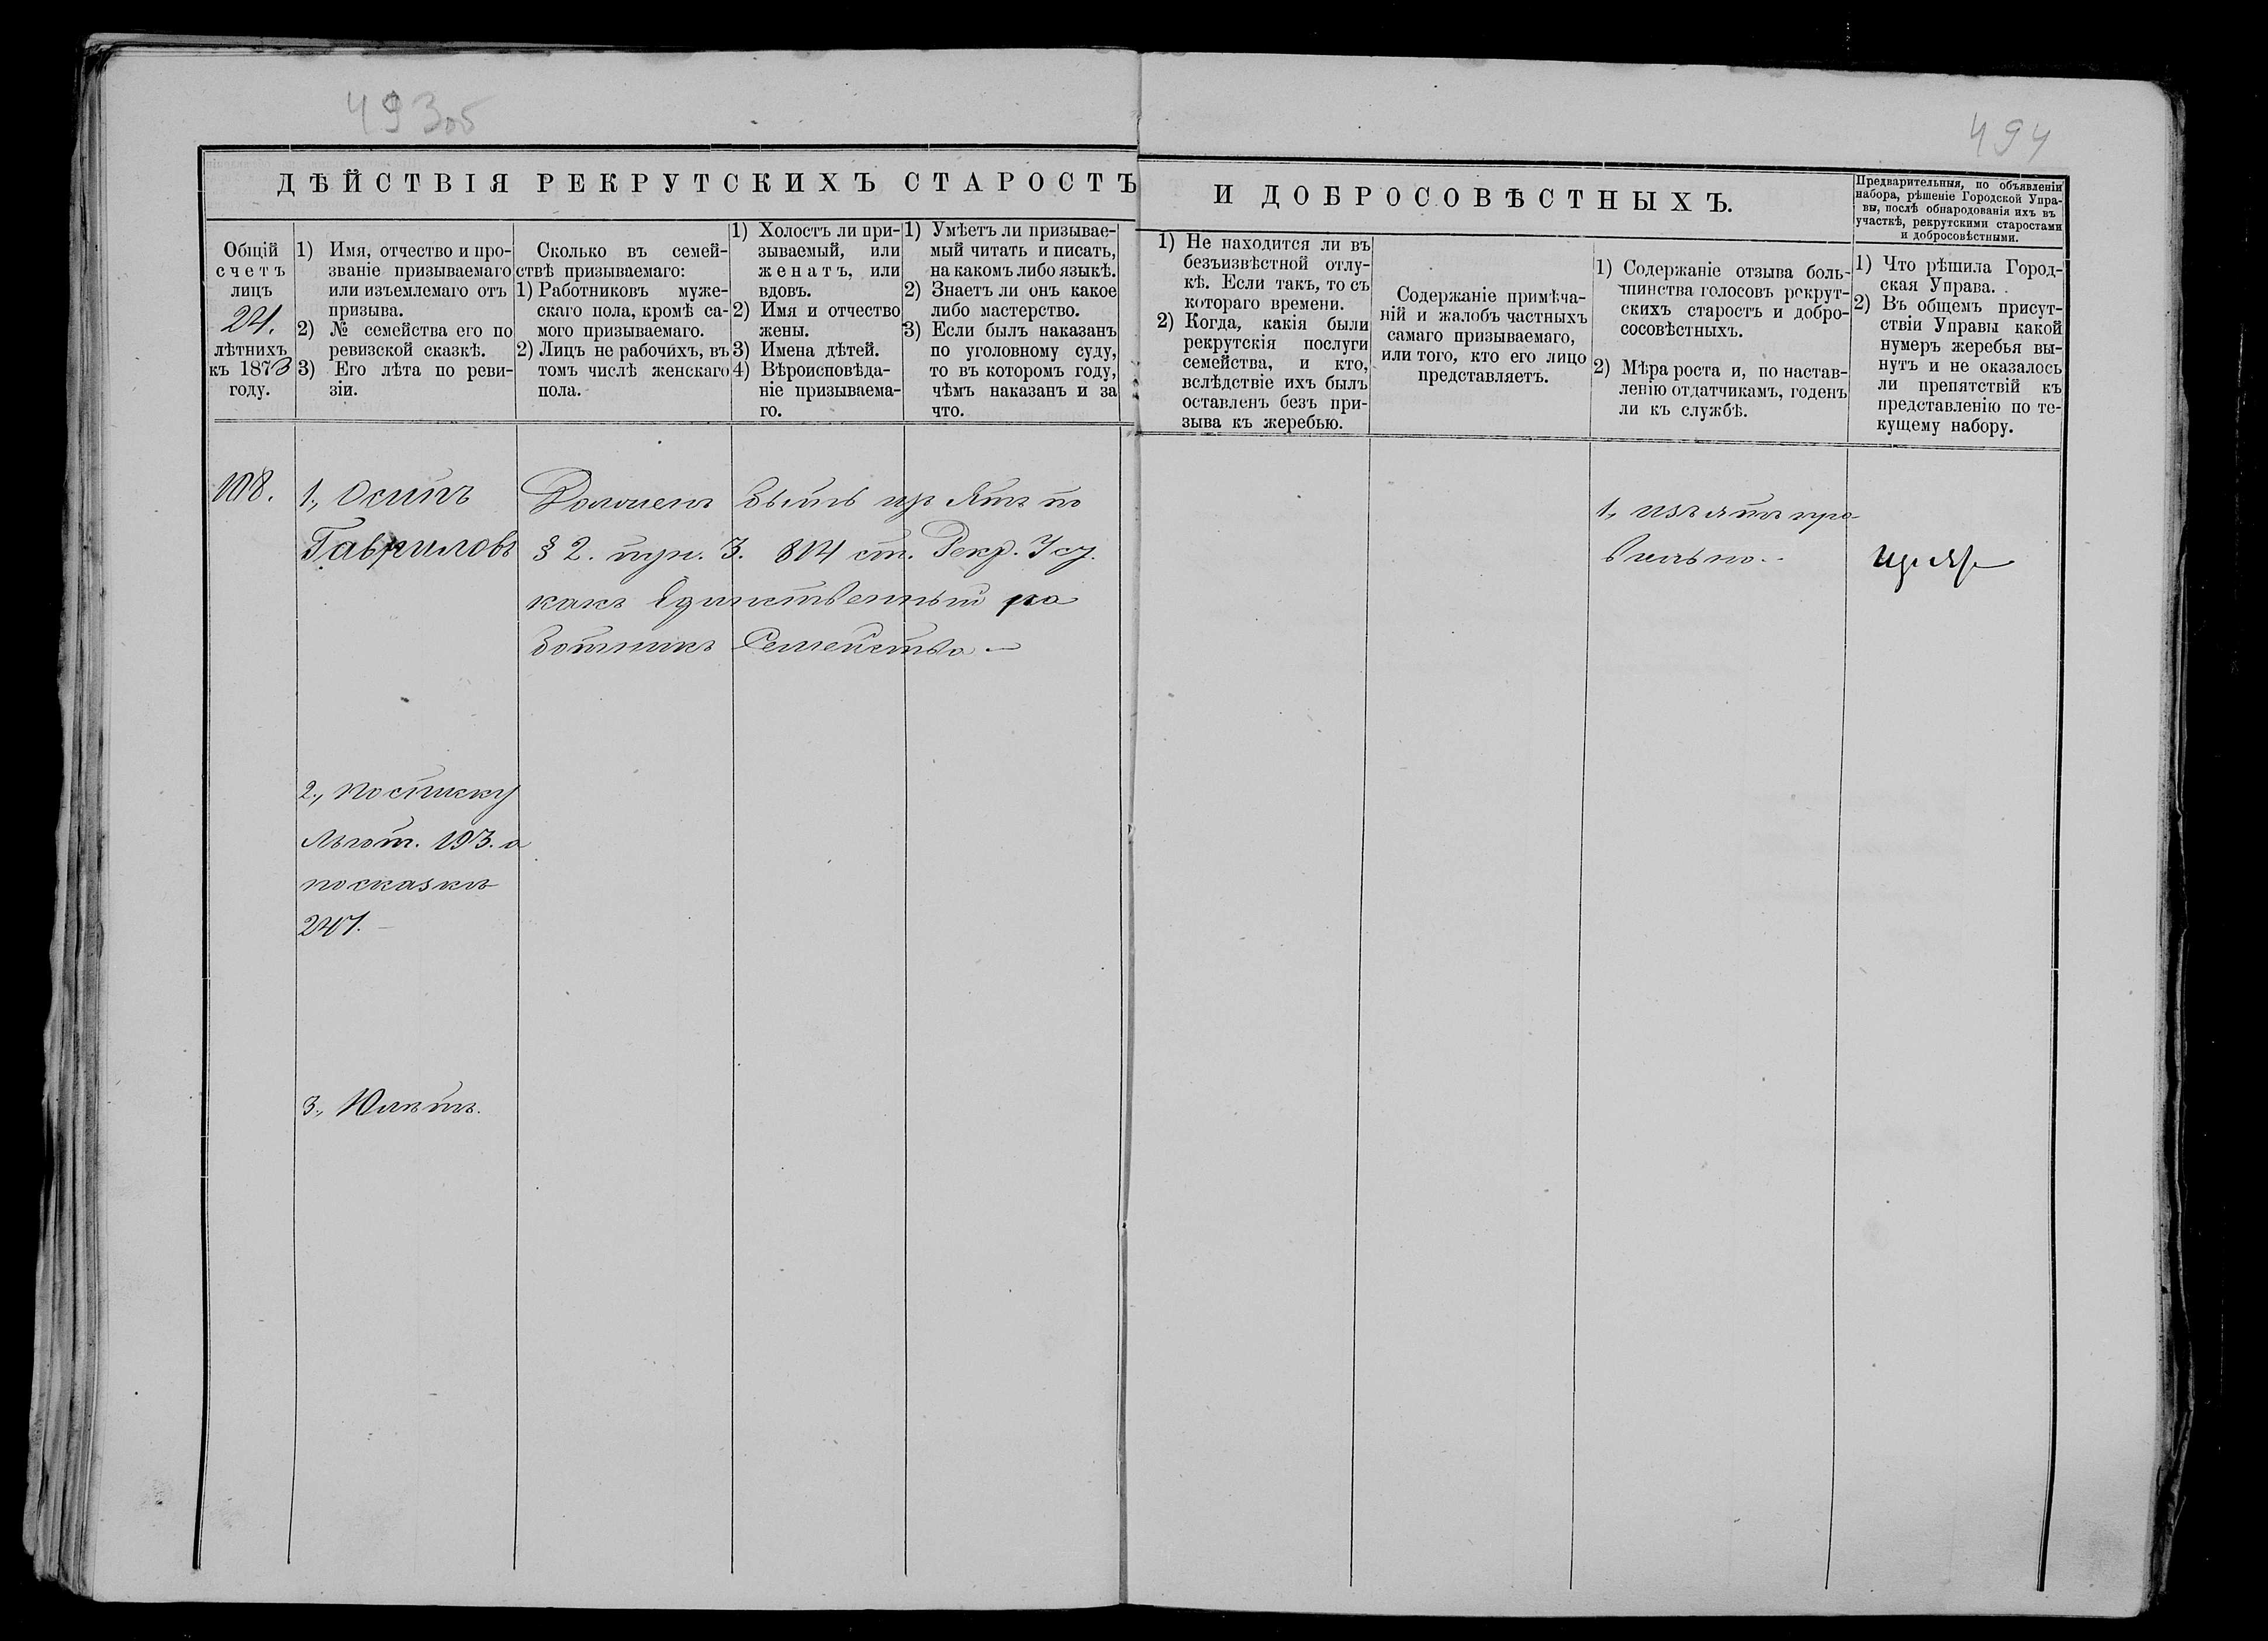 493об
494
ДѢЙСТВІЯ РЕКРУТСКИХЪ СТАРОСТЪ
И ДОБРОСОВѢСТНЫХЪ.
Предварительныя, по объявленіи
набора, рѣшеніе Городской Упра-
вы, послѣ обнародованія ихъ въ
участкѣ, рекрутскими старостами
и добросовѣстными.
Общій
счетъ
лицъ
24.
лѣтнихъ
къ 1873
году.
1) Имя, отчество и про-
званіе призываемаго
или изъемлемаго отъ
призыва.
2) № семейства его по
ревизской сказкѣ.
3) Его лѣта по реви-
зіи.
Сколько въ семей-
ствѣ призываемаго:
1) Работниковъ муже-
скаго пола, кромѣ са-
мого призываемаго.
2) Лицъ не рабочихъ, въ
томъ числѣ женскаго
пола.
1) Холостъ ли при-
зываемый, или
женатъ, или
вдовъ.
2) Имя и отчество
жены.
3) Имена дѣтей.
4) Вѣроисповѣда-
ніе призываема-
го.
1) Умѣетъ ли призывае-
мый читать и писать,
на какомъ либо языкѣ.
2) Знаетъ ли онъ какое
либо мастерство.
3) Если былъ наказанъ
по уголовному суду,
то въ которомъ году,
чѣмъ наказанъ и за
что.
1) Не находится ли въ
безъизвѣстной отлу-
кѣ. Если такъ, то съ
котораго времени.
2) Когда, какія были
рекрутскія послуги
семейства, и кто,
вслѣдствіе ихъ былъ
оставленъ безъ при-
зыва къ жеребью.
Содержаніе примѣча-
ній и жалобъ частныхъ
самаго призываемаго,
или того, кто его лицо
представляетъ.
1) Содержаніе отзыва боль-
шинства голосовъ рекрут-
скихъ старостъ и добро-
сосовѣстныхъ.
2) Мѣра роста и, по настав-
ленію отдатчикамъ, годенъ
ли къ службѣ.
1) Что рѣшила Город-
ская Управа.
2) Въ общемъ присут-
ствіи Управы какой
нумеръ жеребья вы-
нутъ и не оказалось
ли препятствій къ
представленію по те-
кущему набору.
108.
1., Осипъ
Гавриловъ
2., по списку
льгот. 193. а
по сказкѣ
247.
3., 10 лѣтъ.
Должен быть изъятъ по
§ 2. пун. 3. 814 ст. Рекр. Уст.
какъ Единственный ра
ботникъ Семейства
1., изъятъ пра-
вильно.
изъят